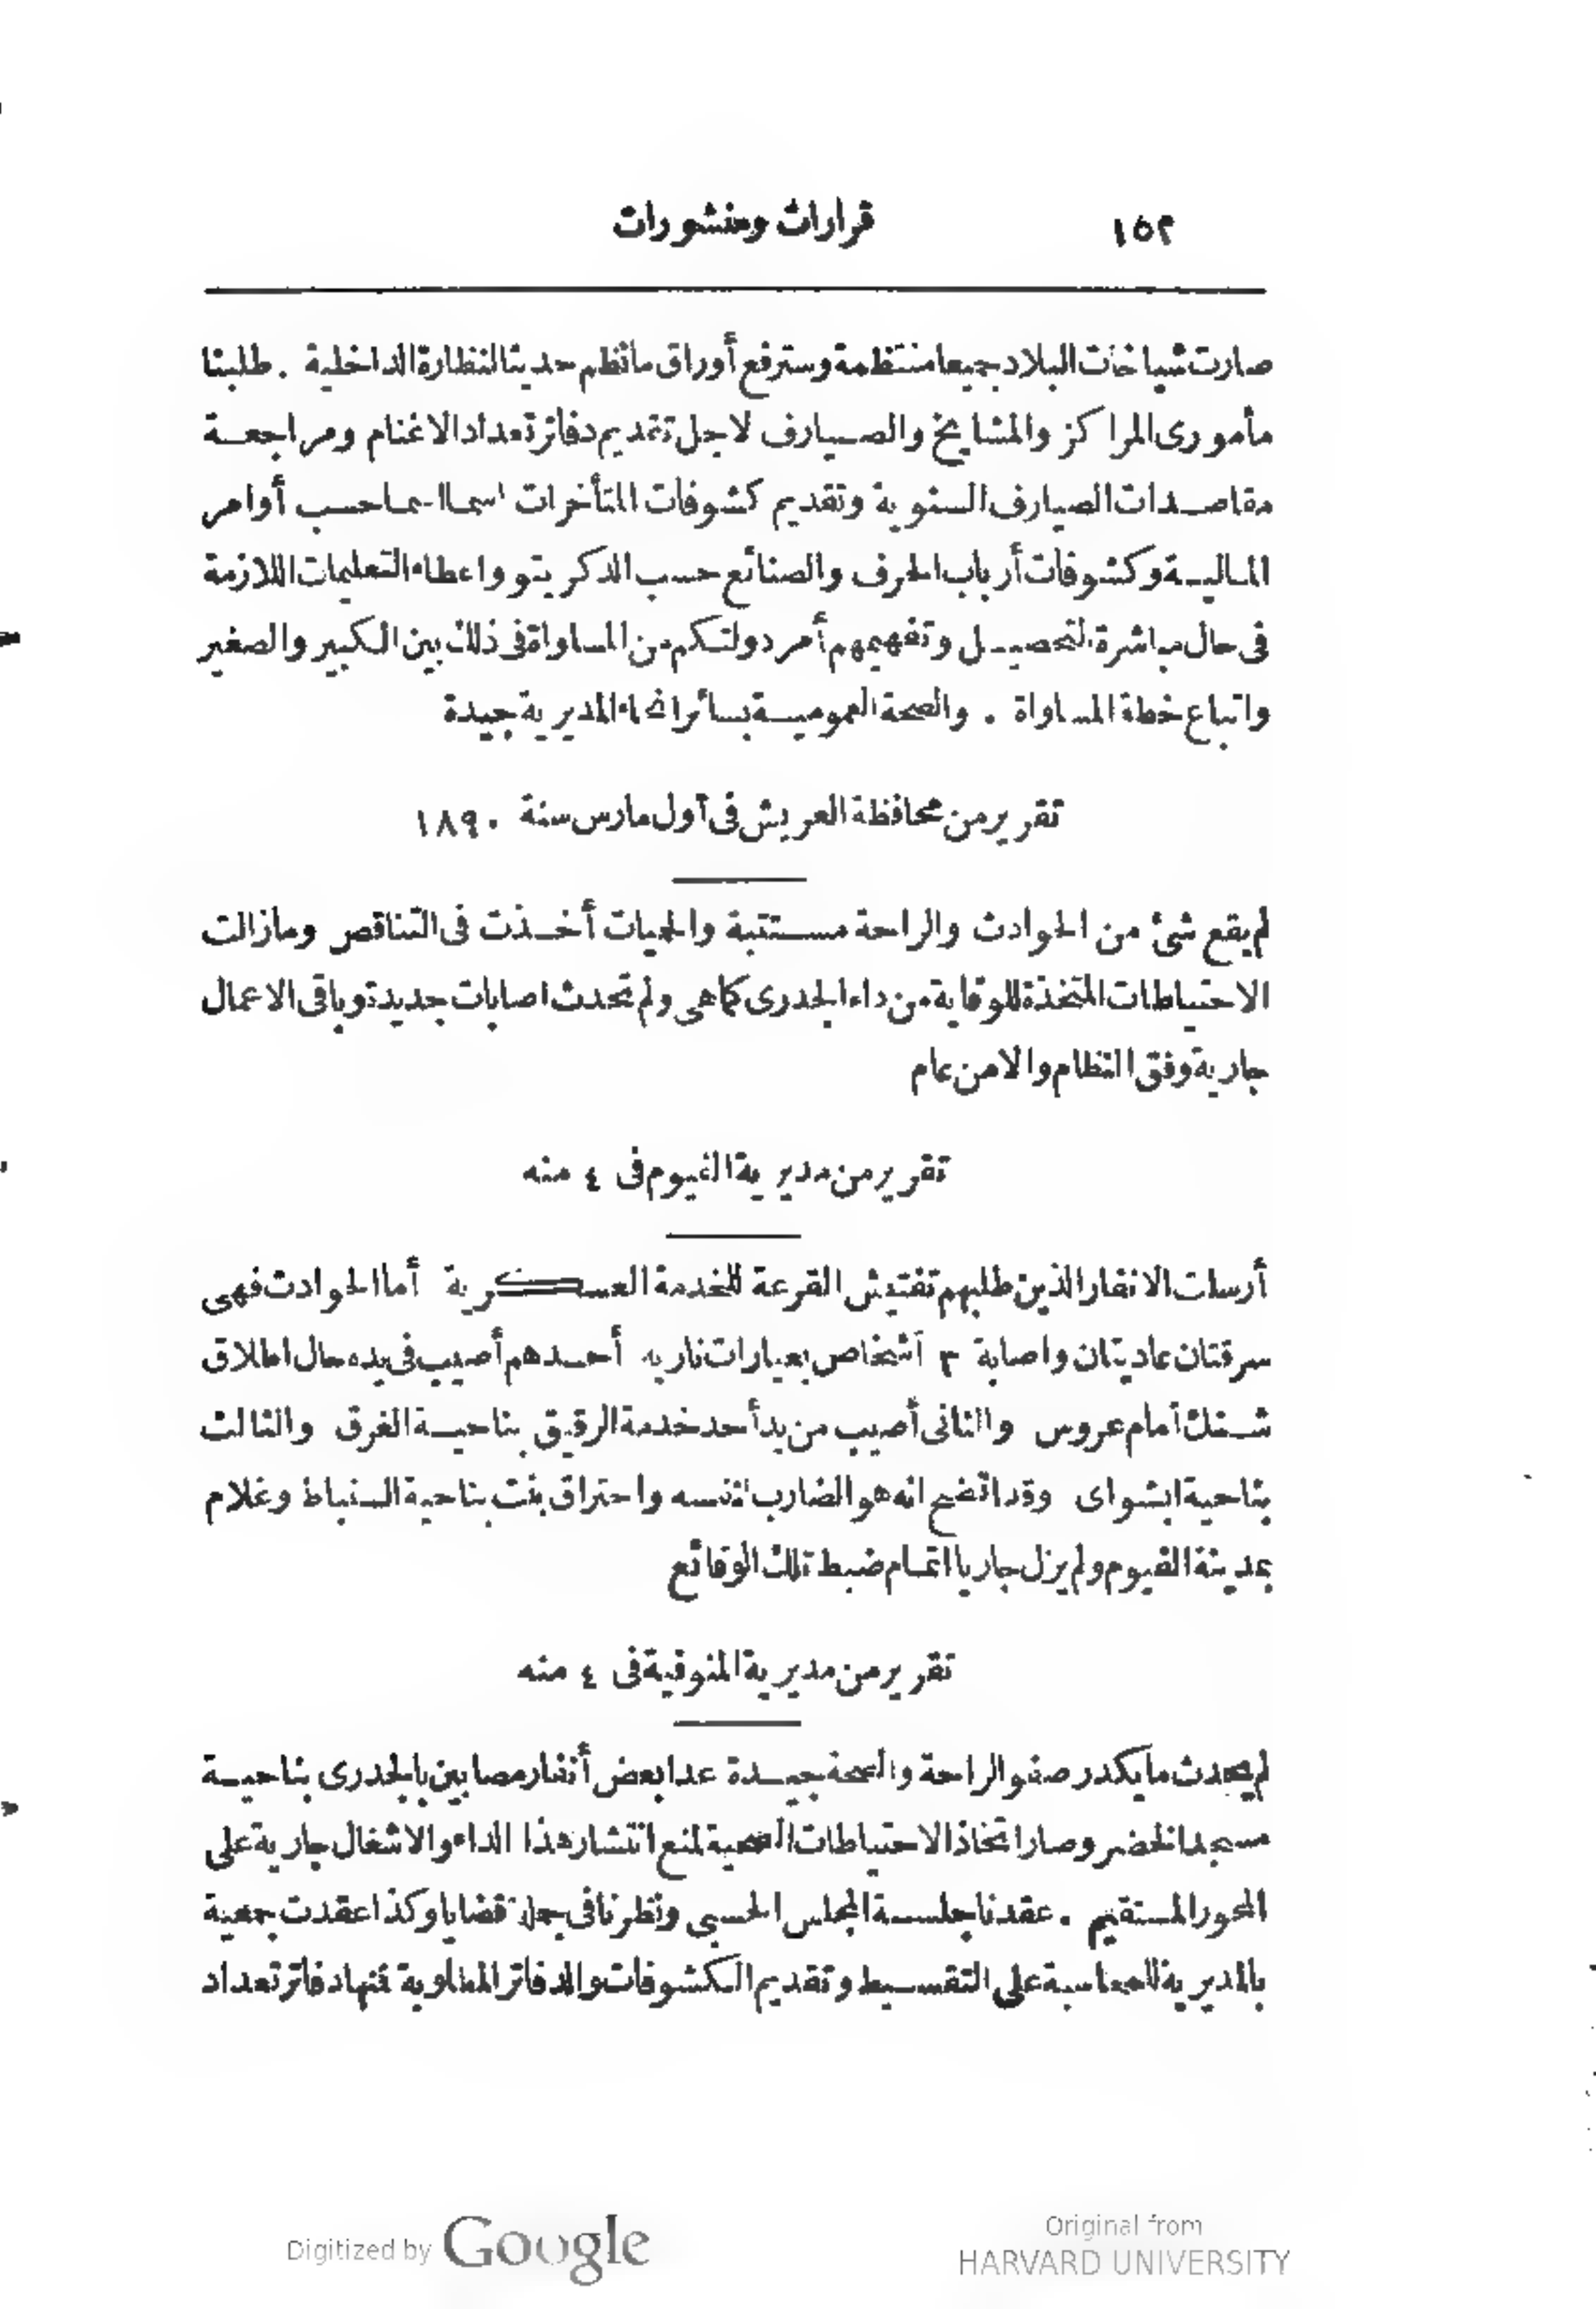 ١٥٢
قرارات ومنشورات
صارت شياخات البلاد جميعا منتظمة وسترفع أوراق ما نظم حديثا لنظارة الداخلية . طلبنا
مأمورى المراكز والمشايخ والصيارف لاجل تقديم دفاتر تعداد الاغنام ومراجعة
مقاصدات الصيارف السنوية وتقديم كشوفات المتأخرات حسب أوامر
المالية وكشوفات أرباب الحرف والصنائع حسب الدكريتو واعطاء التعليمات اللازمة
فى حال مباشرة التحصيل وتفهيمهم أمر دولتكم من المساواة فى ذلك بين الكبير والصغير
واتباع خطة المساواة . والصحة العمومية بسائر انحاء المديرية جيدة
تقرير من محافظة العريش فى أول مارس سنة ١٨٩٠
لم يقع شئ من الحوادث والراحة مستتبة والحميات أخذت فى التناقص ومازالت
الاحتياطات المتخذة للوقاية من داء الجدرى كما هى ولم تحدث اصابات جديدة وباقى الاعمال
جارية وفق النظام والامن عام
تقرير من مديرية الفيوم فى ٤ منه
أرسلت الانفار الذين طلبهم تفتيش القرعة للخدمة العسكرية أما الحوادث فهى
سرقتان عاديتان واصابة ٣ أشخاص بعيارات ناريه أحدهم أصيب فى يده حال اطلاق
شنك أمام عروس والثانى أصيب من يد أحد خدمة الرقيق بناحية الغرق والثالث
بناحية ابشواى وقد اتضح انه هو الضارب لنفسه واحتراق بنت بناحية السنباط وغلام
بمدينة الفيوم ولم يزل جاريا اتمام ضبط تلك الوقائع
تقرير من مديرية المنوفية فى ٤ منه
لم يحدث ما يكدر صفو الراحة والصحة جيدة عدا بعض أنفار مصابين بالجدرى بناحية
مسجد الخضر وصار اتخاذ الاحتياطات الصحية لمنع انتشار هذا الداء والاشغال جارية على
المحور المستقيم . عقدنا جلسة المجلس الحسبى ونظرنا فى جملة قضايا وكذا عقدت جمعية
بالمديرية للمحاسبة على التقسيط وتقديم الكشوفات والدفاتر المطلوبة فمنها دفاتر تعداد
Digitized by Google
Original from
HARVARD UNIVERSITY